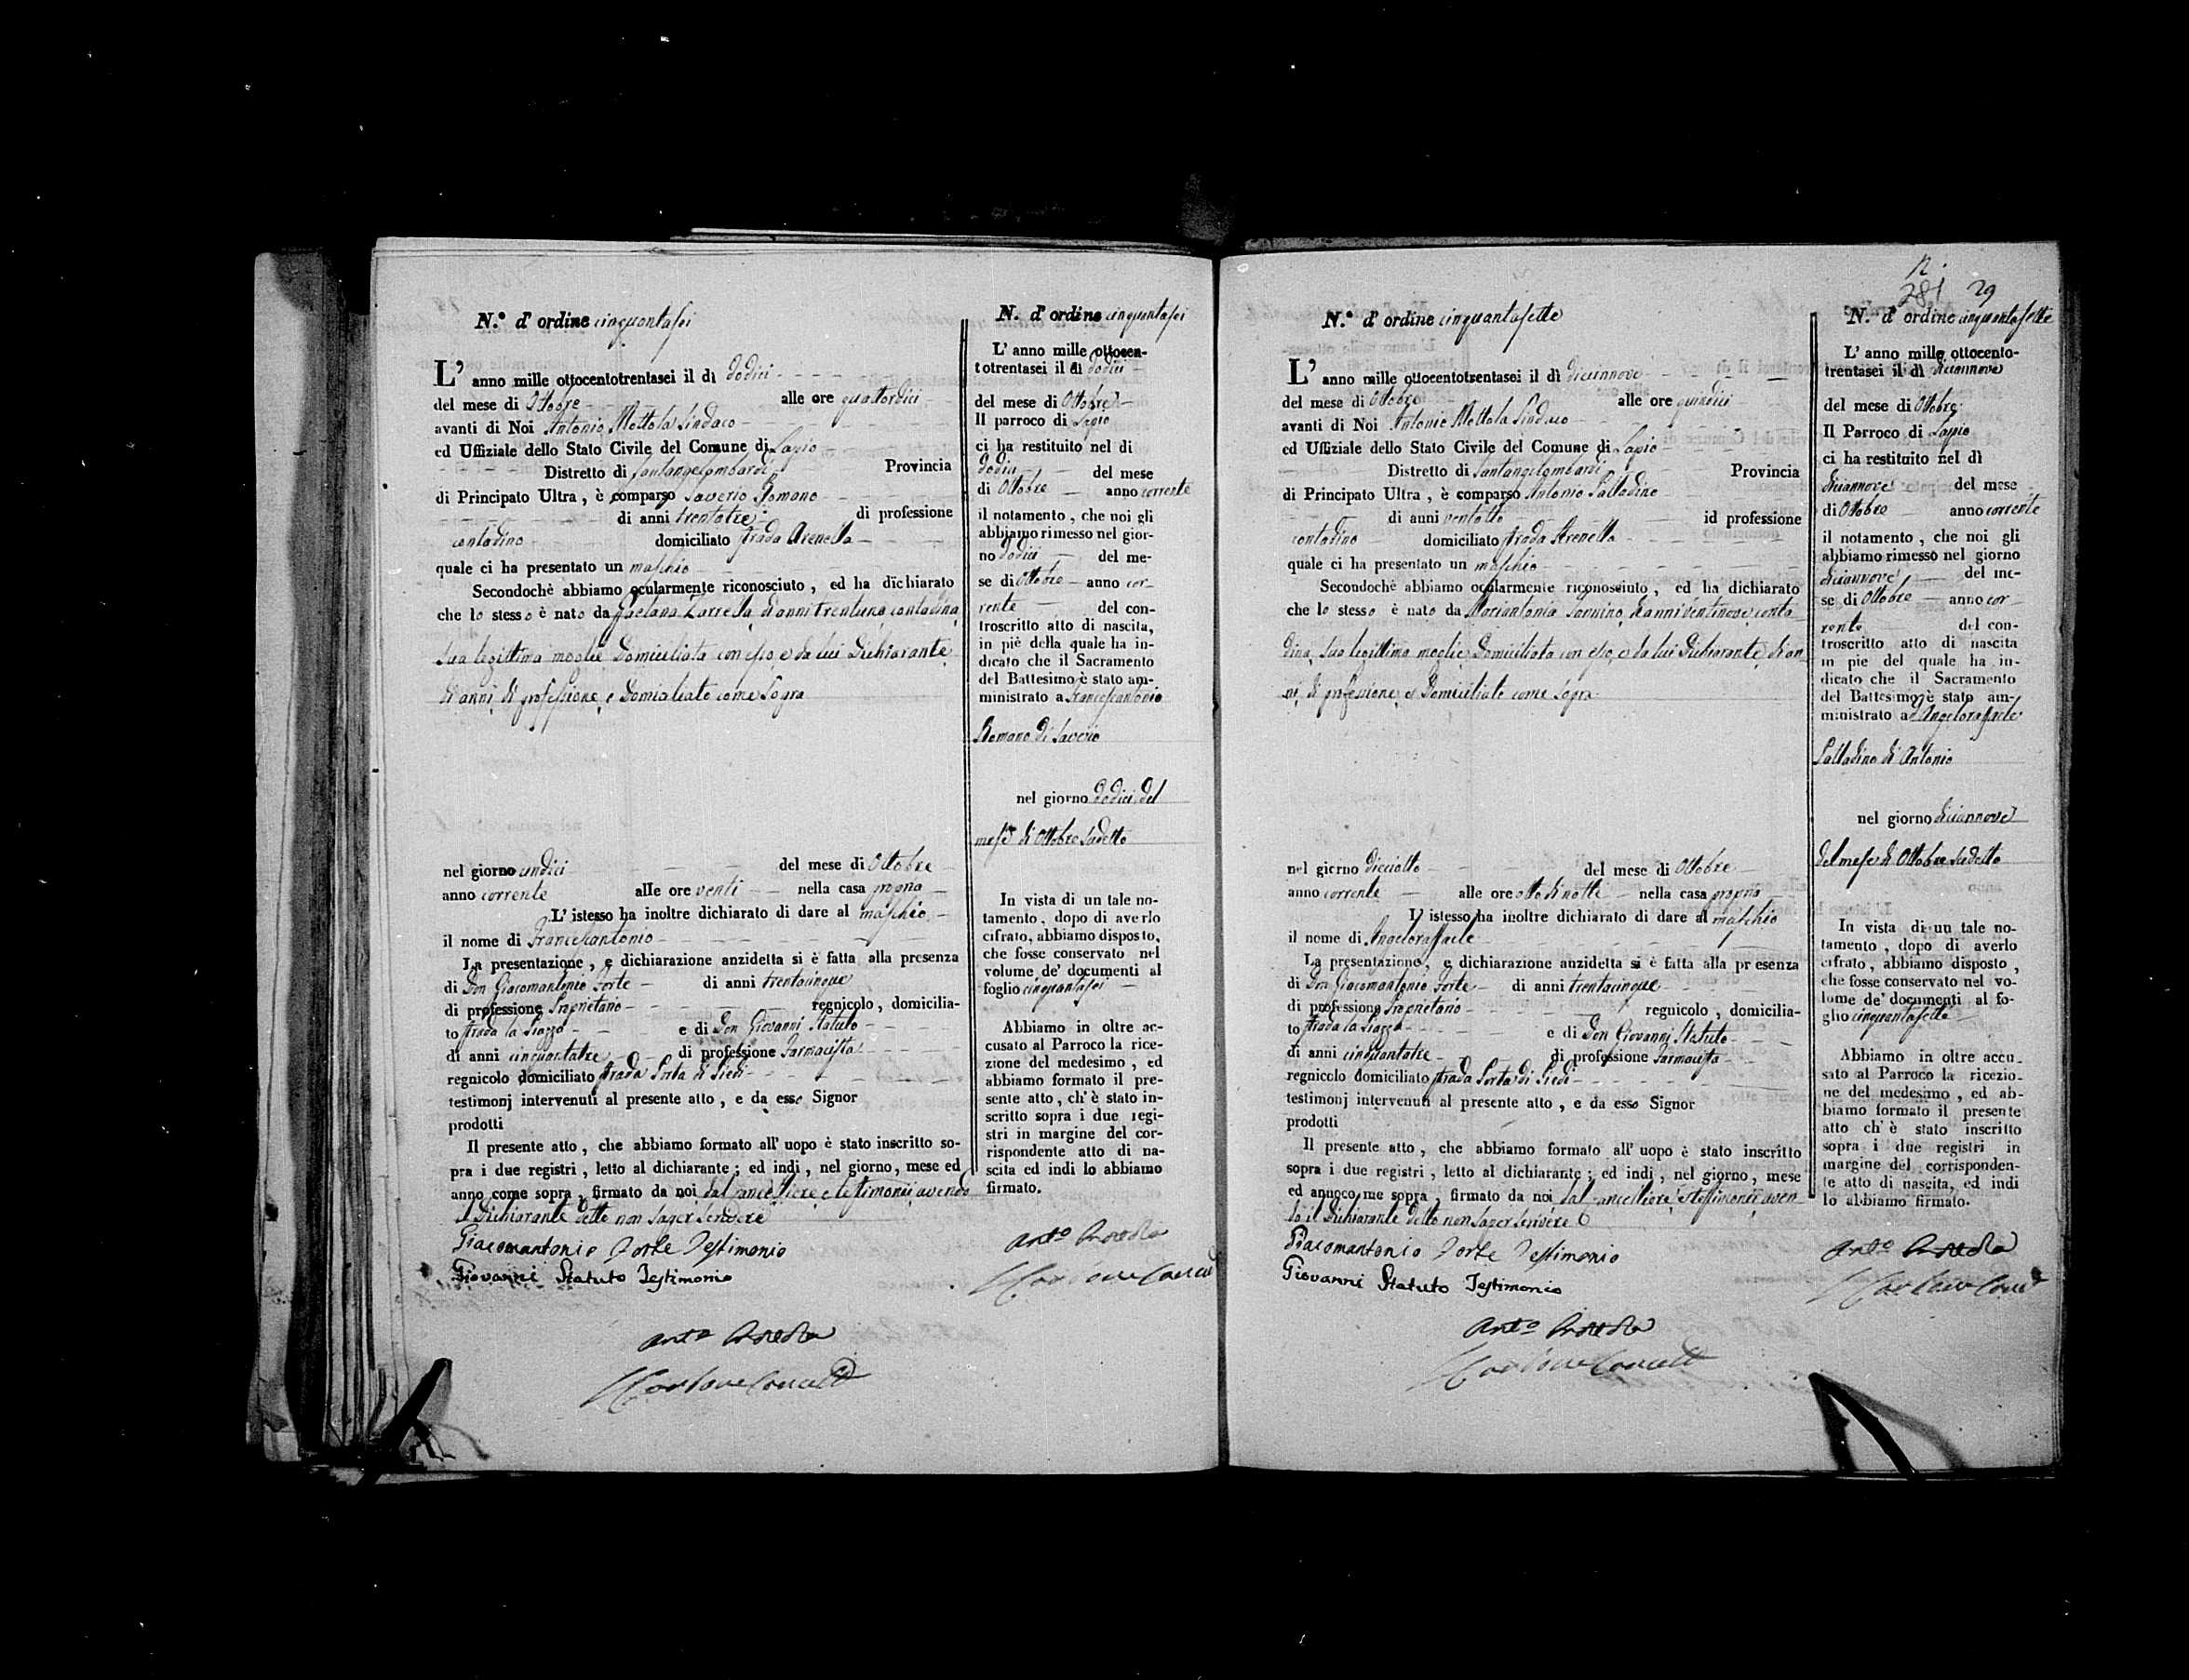 N.º d'ordine cinquantasei
L' anno mille ottocentotrentasei il dì dodici
del mese di Ottobre alle ore quattordici
avanti di Noi Antonio Mottola Sindaco
ed Uffiziale dello Stato Civile del Comune di Lapio
Distretto di Santangelombardi Provincia
di Principato Ultra, è comparso Saverio Romano
di anni trentatre di professione
contadino domiciliato strada Arenella
quale ci ha presentato un maschio
Secondochè abbiamo ocularmente riconosciuto, ed ha dichiarato
che lo stesso è nato da Gaetana Zarrella, d'anni trentuno contadina,
sua legittima moglie domiciliata con esso, e da lui Dichiarante
di anni, di professione, e Domiciliato come sopra
nel giorno undici del mese di Ottobre
anno corrente alle ore venti nella casa propria
L' istesso ha inoltre dichiarato di dare al maschio
il nome di Francescantonio
La presentazione, e dichiarazione anzidetta si è fatta alla presenza
di Don Giacomantonio Forte di anni trentacinque
di professione Proprietario regnicolo, domicilia-
to strada la Piazza e di Don Giovanni Statuto
di anni cinquantatre di professione Farmacista
regnicolo domiciliato strada Porta di Piedi
testimonj intervenuti al presente atto, e da esso Signor
prodotti
Il presente atto, che abbiamo formato all' uopo è stato inscritto so-
pra i due registri, letto al dichiarante; ed indi, nel giorno, mese ed
anno come sopra, firmato da noi dal cancelliere, e testimonii avendo
il Dichiarante detto non saper scrivere
Giacomantonio Forte Testimonio
Giovanni Statuto Testimonio
Ant.º Mottola
N. d' ordine cinquantasei
L' anno mille ottocen-
totrentasei il dì dodici
del mese di Ottobre
Il parroco di Lapio
ci ha restituito nel dì
dodici del mese
di Ottobre anno corrente
il notamento, che noi gli
abbiamo rimesso nel gior-
no dodici del me-
se di Ottobre anno cor-
rente del con-
troscritto atto di nascita,
in piè della quale ha in-
dicato che il Sacramento
del Battesimo è stato am-
ministrato a Francescantonio
Romano di Saverio
nel giorno dodici del
mese di Ottobre sudetto
In vista di un tale no-
tamento, dopo di averlo
cifrato, abbiamo disposto,
che fosse conservato nel
volume de' documenti al
foglio cinquantasei
Abbiamo in oltre ac-
cusato al Parroco la rice-
zione del medesimo, ed
abbiamo formato il pre-
sente atto, ch' è stato in-
scritto sopra i due regi-
stri in margine del cor-
rispondente atto di na-
scita ed indi lo abbiamo
firmato.
Ant.º Mottola
281 29
N.º d' ordine cinquantasette
L' anno mille ottocentotrentasei il dì diciannove
del mese di Ottobre alle ore quindici
avanti di Noi Antonio Mottola Sindaco
ed Uffiziale dello Stato Civile del Comune di Lapio
Distretto di Santangelombardi Provincia
di Principato Ultra, è comparso Antonio Palladino
di anni ventotto id professione
contadino domiciliato strada Arenella
quale ci ha presentato un maschio
Secondochè abbiamo ocularmente riconosciuto, ed ha dichiarato
che lo stesso è nato da Mariantonia Sannino, d'anni ventinove conta
dina, sua legittima moglie, domiciliata con esso, e da lui Dichiarante, di an
ni, di professione, e Domiciliato come sopra
nel giorno dieciotto del mese di Ottobre
anno corrente alle ore otto di notte nella casa propria
L' istesso ha inoltre dichiarato di dare al maschio
il nome di Angeloraffaele
La presentazione, e dichiarazione anzidetta si è fatta alla presenza
di Don Giacomantonio Forte di anni trentacinque
di professione Proprietario regnicolo, domicilia-
to strada la Piazza e di Don Giovanni Statuto
di anni cinquantatre di professione Farmacista
regnicolo domiciliato strada Porta di Piedi
testimonj intervenuti al presente atto, e da esso Signor
prodotti
Il presente atto, che abbiamo formato all' uopo è stato inscritto
sopra i due registri, letto al dichiarante; ed indi, nel giorno, mese
ed annoco me sopra, firmato da noi dal cancelliere, e testimonii aven
do il Dichiarante detto non saper scrivere
Giacomantonio Forte Testimonio
Giovanni Statuto Testimonio
Ant.º Mottola
N. d' ordine cinquantasette
L' anno mille ottocento-
trentasei il dì diciannove
del mese di Ottobre
Il Parroco di Lapio
ci ha restituito nel dì
diciannove del mese
di Ottobre anno corrente
il notamento, che noi gli
abbiamo rimesso nel giorno
diciannove del me-
se di Ottobre anno cor-
rente del con-
troscritto atto di nascita
in pie del quale ha in-
dicato che il Sacramento
del Battesimo è stato am-
ministrato ad Angeloraffaele
Palladino di Antonio
nel giorno diciannove
del mese di Ottobre sudetto
In vista di un tale no-
tamento, dopo di averlo
cifrato, abbiamo disposto,
che fosse conservato nel vo-
lume de' documenti al fo-
glio cinquantasette
Abbiamo in oltre accu-
sato al Parroco la ricezio-
ne del medesimo, ed ab-
biamo formato il presente
atto ch' è stato inscritto
sopra i due registri in
margine del corrisponden-
te atto di nascita, ed indi
lo abbiamo firmato.
Ant.º Mottola